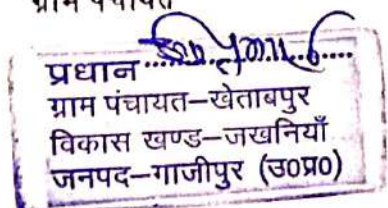 ग्राम पंचायत
प्रधान
ग्राम पंचायत–खेताबपुर
विकास खण्ड–जखनियाँ
जनपद–गाजीपुर (उ०प्र०)